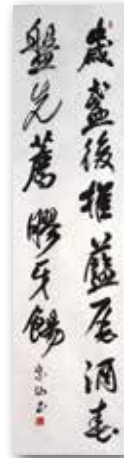 歲盞後推藍尾酒春
盤先薦膠牙餳